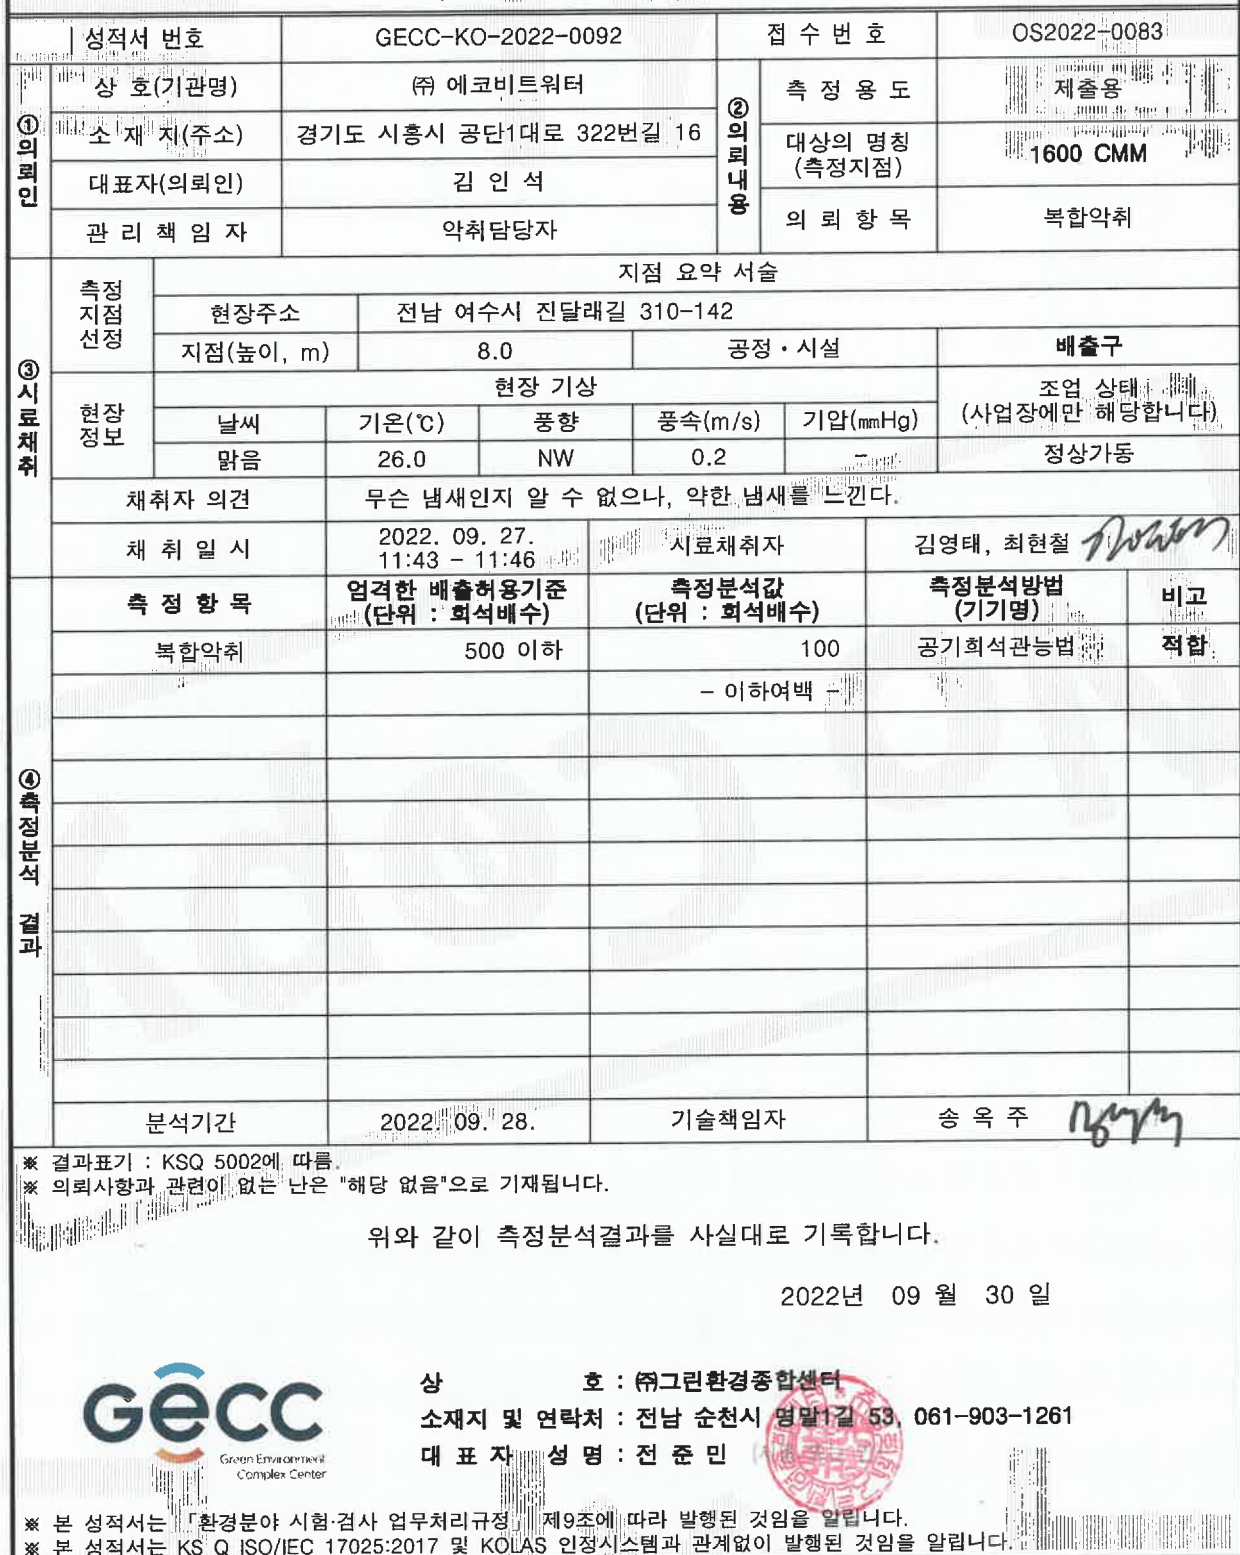 성적서 번호 GECC-KO-2022-0092 접 수 번 호 OS2022-0083
①의뢰인
상 호(기관명) ㈜ 에코비트워터
소 재 지(주소) 경기도 시흥시 공단1대로 322번길 16
대표자(의뢰인) 김 인 석
관 리 책 임 자 악취담당자
②의뢰내용
측 정 용 도 제출용
대상의 명칭 (측정지점) 1600 CMM
의 뢰 항 목 복합악취
③시료채취
측정 지점 선정
지점 요약 서술
현장주소 전남 여수시 진달래길 310-142
지점(높이, m) 8.0 공정・시설 배출구
현장 정보
현장 기상 조업 상태
(사업장에만 해당합니다)
날씨 기온(℃) 풍향 풍속(m/s) 기압(mmHg)
맑음 26.0 NW 0.2 - 정상가동
채취자 의견 무슨 냄새인지 알 수 없으나, 약한 냄새를 느낀다.
채 취 일 시 2022. 09. 27.
11:43 - 11:46 시료채취자 김영태, 최현철
④측정분석 결과
측 정 항 목 엄격한 배출허용기준 (단위 : 희석배수) 측정분석값 (단위 : 희석배수) 측정분석방법 (기기명) 비고
복합악취 500 이하 100 공기희석관능법 적합
- 이하여백 -
분석기간 2022. 09. 28. 기술책임자 송 옥 주
※ 결과표기 : KSQ 5002에 따름.
※ 의뢰사항과 관련이 없는 난은 "해당 없음"으로 기재됩니다.
위와 같이 측정분석결과를 사실대로 기록합니다.
2022년 09 월 30 일
GECC
Green Environment
Complex Center
상 호 : ㈜그린환경종합센터
소재지 및 연락처 : 전남 순천시 명말1길 53, 061-903-1261
대 표 자 성 명 : 전 준 민
※ 본 성적서는 「환경분야 시험·검사 업무처리규정」 제9조에 따라 발행된 것임을 알립니다.
※ 본 성적서는 KS Q ISO/IEC 17025:2017 및 KOLAS 인정시스템과 관계없이 발행된 것임을 알립니다.